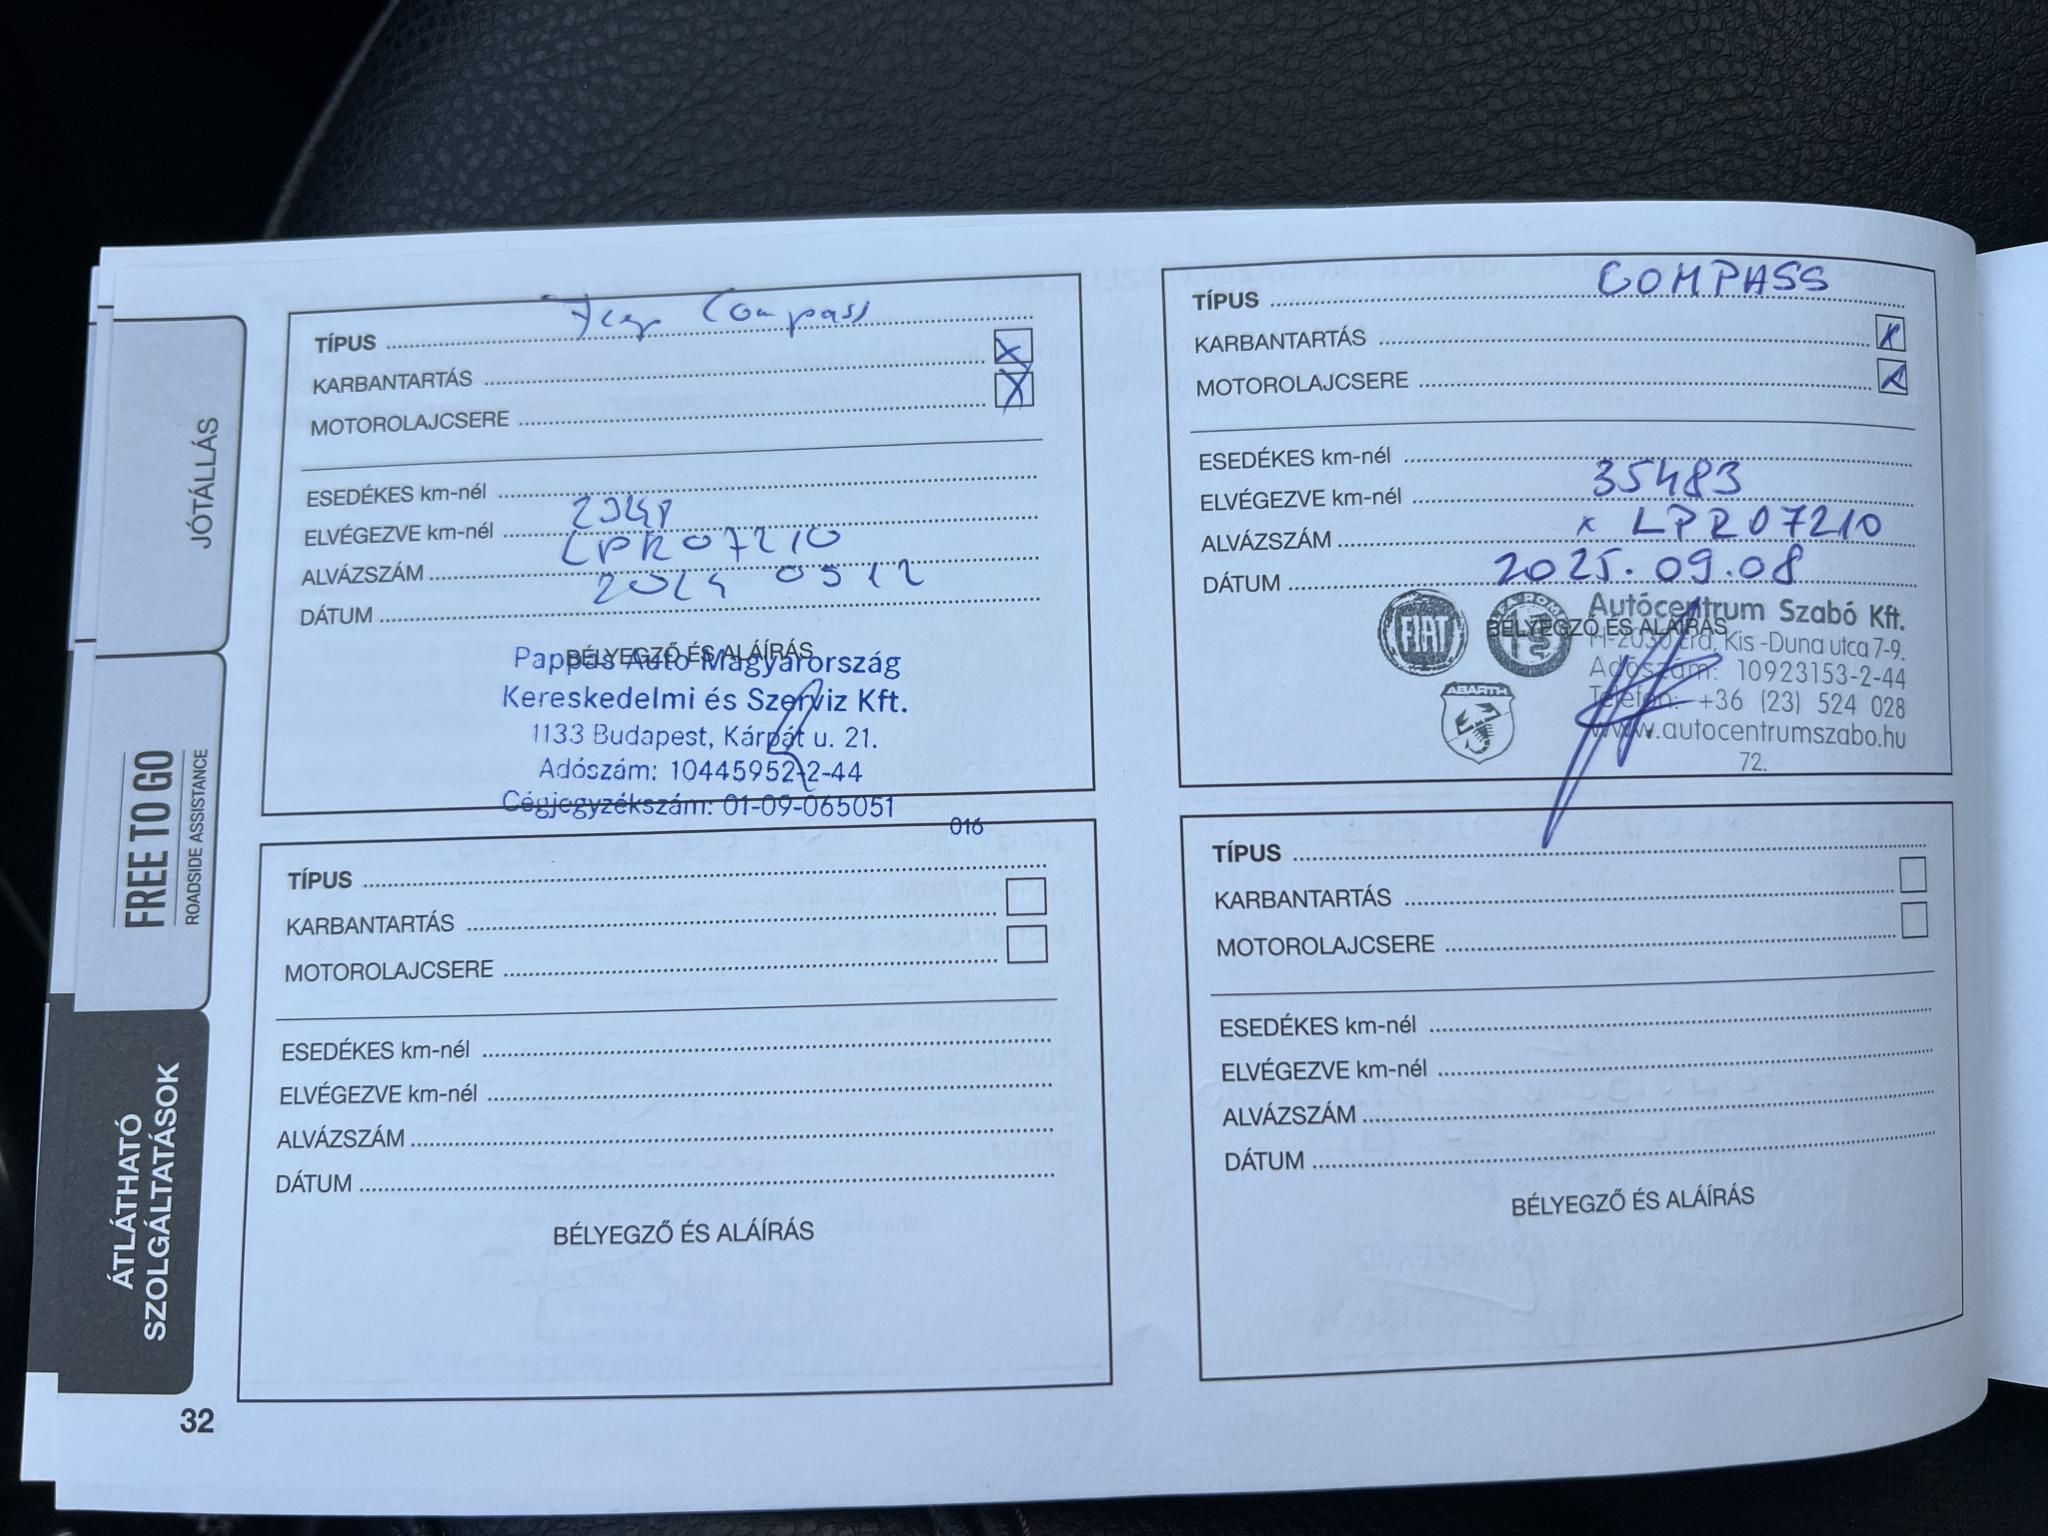 JÓTÁLLÁS
FREE TO GO
ROADSIDE ASSISTANCE
ÁTLÁTHATÓ
SZOLGÁLTATÁSOK
TÍPUS Jeep Compass
KARBANTARTÁS X
MOTOROLAJCSERE X
ESEDÉKES km-nél
ELVÉGEZVE km-nél
ALVÁZSZÁM LPR07210
DÁTUM 2024 05 12
BÉLYEGZŐ ÉS ALÁÍRÁS
Pappas Auto Magyarország
Kereskedelmi és Szerviz Kft.
1133 Budapest, Kárpát u. 21.
Adószám: 10445952-2-44
Cégjegyzékszám: 01-09-065051
016
TÍPUS COMPASS
KARBANTARTÁS X
MOTOROLAJCSERE X
ESEDÉKES km-nél
ELVÉGEZVE km-nél 35483
ALVÁZSZÁM x LPR07210
DÁTUM 2025.09.08
BÉLYEGZŐ ÉS ALÁÍRÁS
FIAT
ALFA ROMEO
ABARTH
Autócentrum Szabó Kft.
H-2030 Érd, Kis-Duna utca 7-9.
Adószám: 10923153-2-44
Telefon: +36 (23) 524 028
www.autocentrumszabo.hu
72.
TÍPUS
KARBANTARTÁS
MOTOROLAJCSERE
ESEDÉKES km-nél
ELVÉGEZVE km-nél
ALVÁZSZÁM
DÁTUM
BÉLYEGZŐ ÉS ALÁÍRÁS
TÍPUS
KARBANTARTÁS
MOTOROLAJCSERE
ESEDÉKES km-nél
ELVÉGEZVE km-nél
ALVÁZSZÁM
DÁTUM
BÉLYEGZŐ ÉS ALÁÍRÁS
32